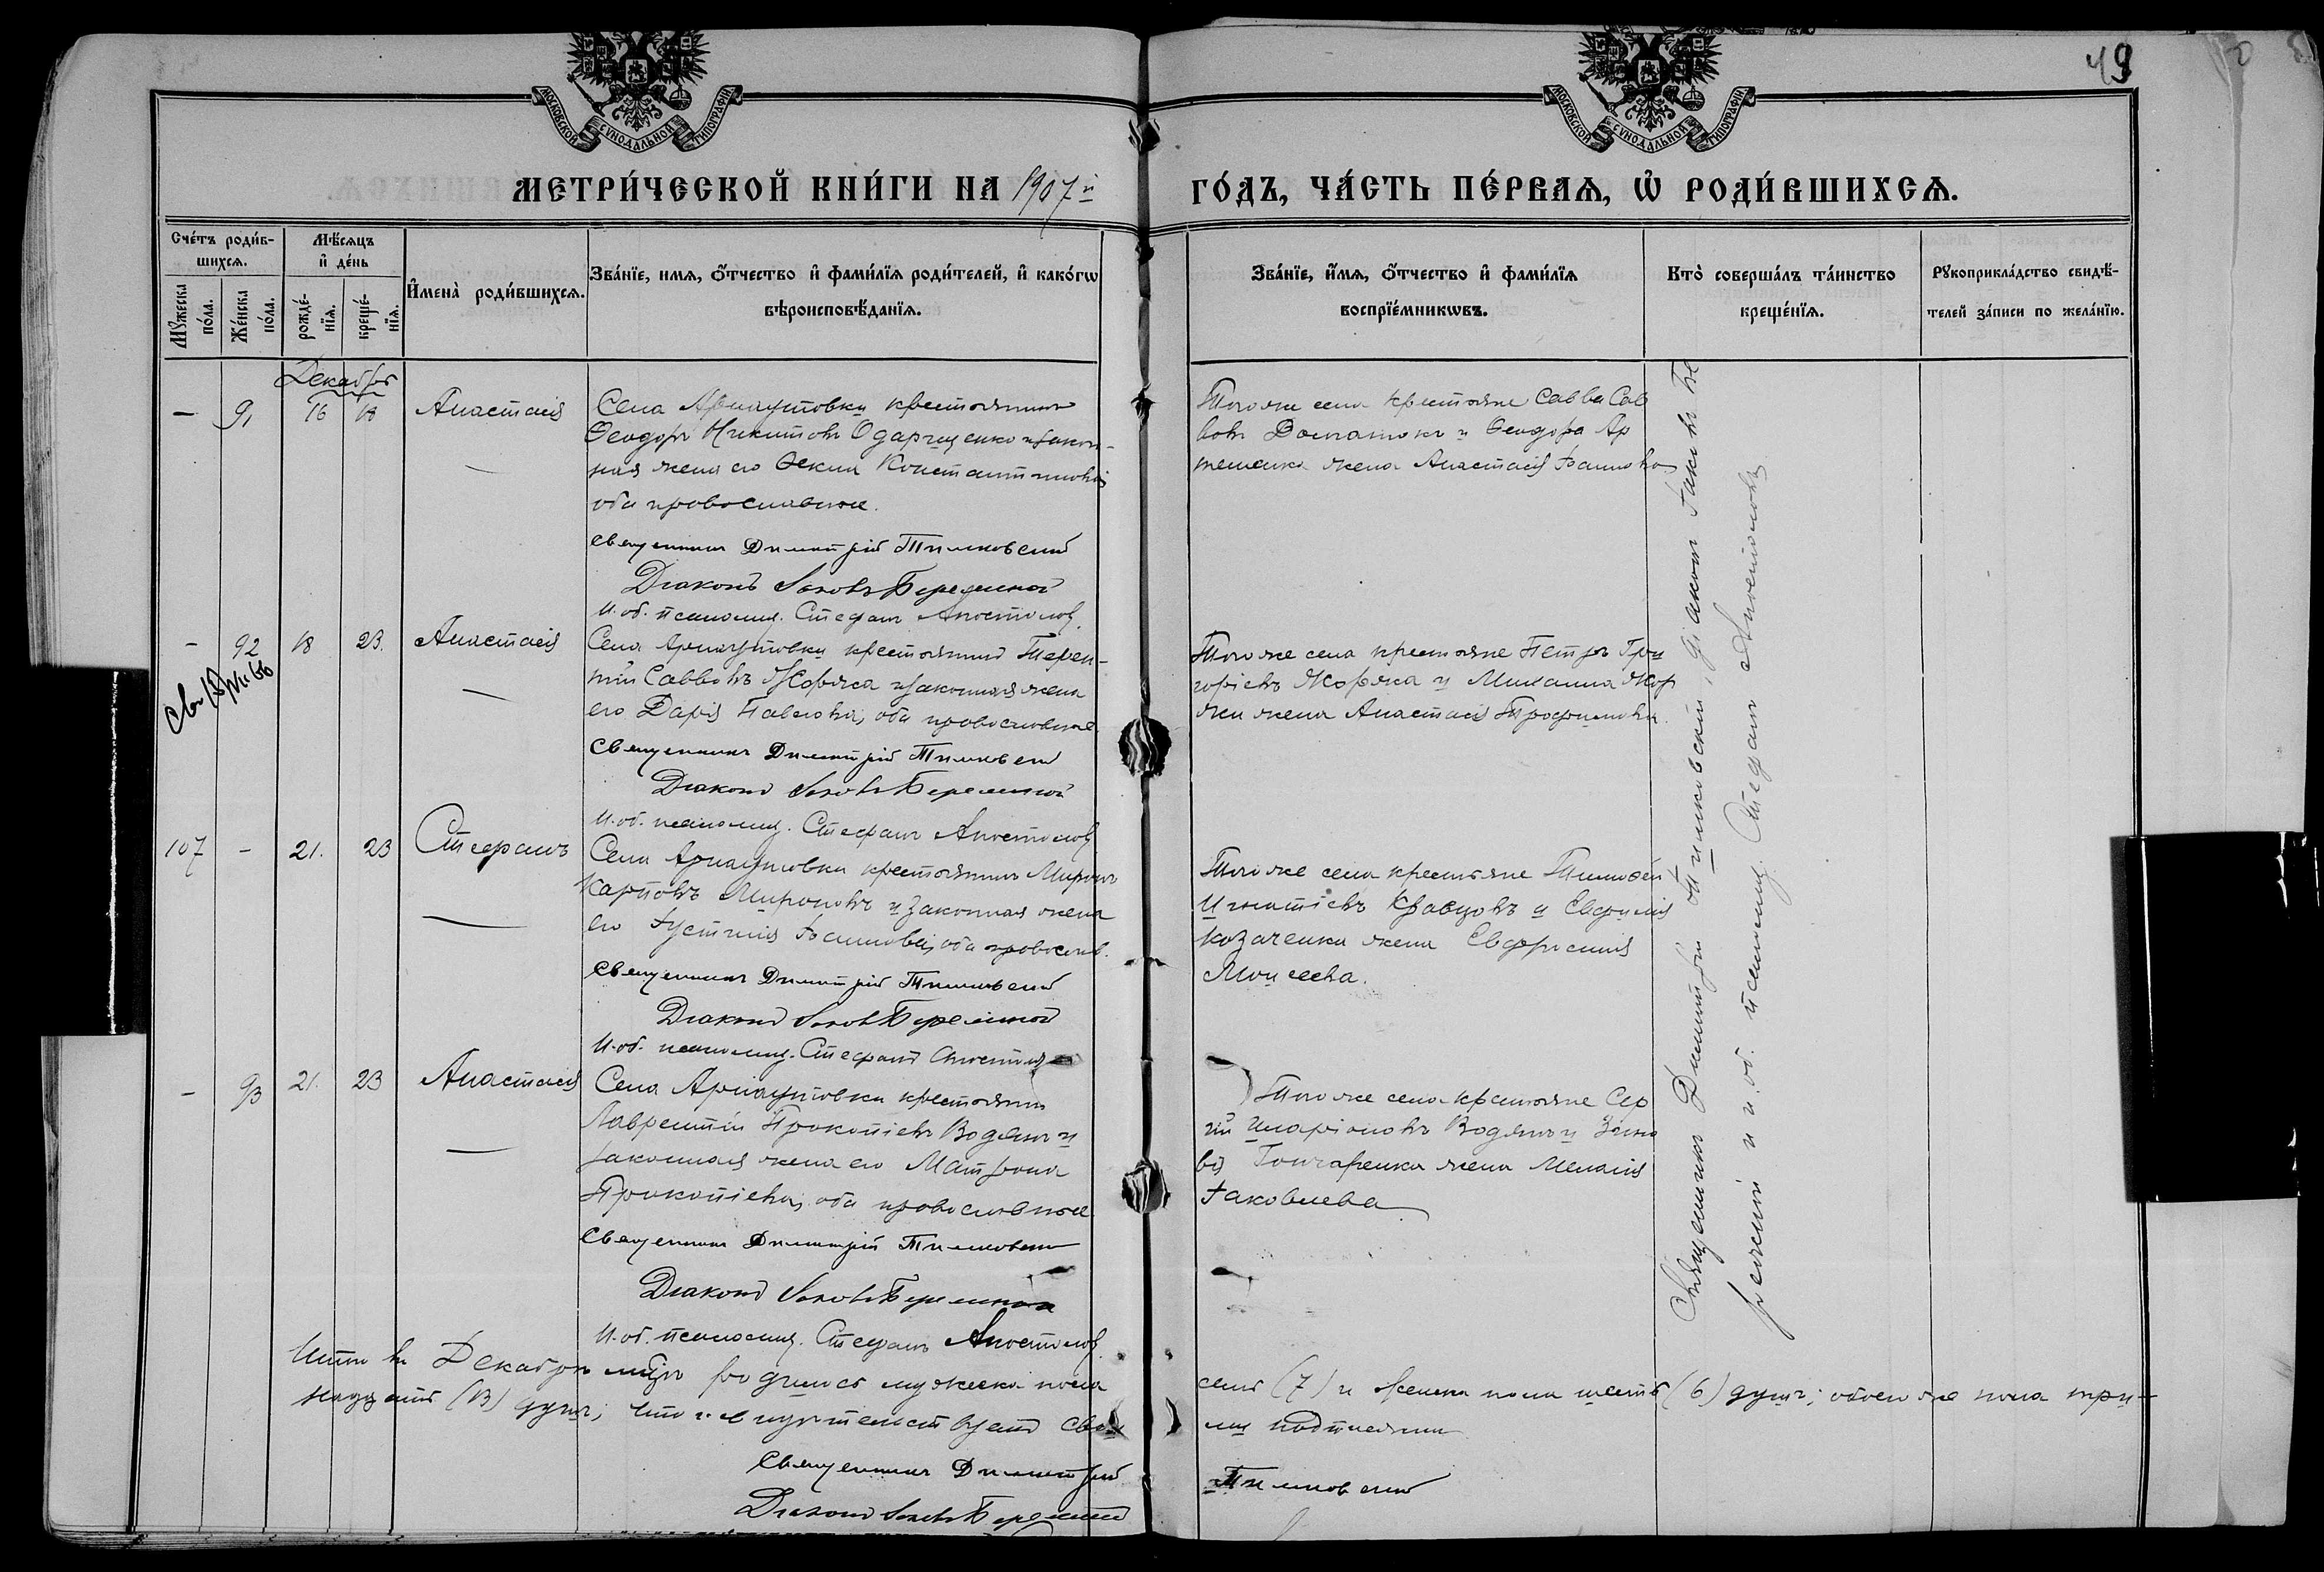 МОСКОВСКОЙ СУНОДАЛЬНОЙ ТИПОГРАФІИ
МОСКОВСКОЙ СУНОДАЛЬНОЙ ТИПОГРАФІИ
49
МЕТРИ́ЧЕСКОЙ КНИ́ГИ НА 1907й
ГО́ДЪ, ЧА́СТЬ ПЕ́РВАѦ, Ѡ҆ РОДИ́ВШИХСѦ.
Сче́тъ роди́в-
шихсѧ.
Мꙋжеска по́ла.
Же́нска по́ла.
Мѣ́сѧцъ
и҆ де́нь
рожде́-
нїѧ.
креще́-
нїѧ.
И҆мена̀ роди́вшихсѧ.
Зва́нїе, имѧ, ѻ҆́тчество и҆ фами́лїѧ роди́телей, и҆ како́гѡ
вѣроисповѣ́данїѧ.
Зва́нїе, и҆́мѧ, ѻ҆́тчество и҆ фами́лїѧ
воспрїе́мникѡвъ.
Кто̀ соверша́лъ та́инство
креще́нїѧ.
Рꙋкоприкла́дство свидѣ́-
телей за́писи по жела́нїю.
Декабрь
— 91 16 18 Анастасія
Села Арнаутовки крестьянинъ
Ѳеодоръ Никитовъ Одарущенко и закон-
ная жена его Ѳекла Константинова
оба православные.
Священникъ Димитрій Тимковскій
Діаконъ Іаковъ Бережной
И. об. псаломщ. Стефанъ Апостоловъ
Того же села крестьяне Савва Сав
вовъ и Ѳеодора Ар
теменка жена Анастасія Іоаннова
- 92 18 23. Анастасія
Села Арнаутовки крестьянинъ Терен-
тій Саввовъ Жоржа и законная жена
его Дарія Павлова, оба православные
Священникъ Димитрій Тимковскій
Діаконъ Іаковъ Бережной
И. об. псаломщ. Стефанъ Апостоловъ
Того же села крестьяне Петръ Гри
горіевъ Жоржа и Михаила Жор
жи жена Анастасія Трофимова.
107 - 21. 23 Стефанъ
Села Арнаутовки крестьянинъ Миронъ
Карповъ Мироновъ и законная жена
его Іустинія Іоаннова, оба православ.
Священникъ Димитрій Тимковскій
Діаконъ Іаковъ Бережной
И. об. псаломщ. Стефанъ Апостоловъ
Того же села крестьяне Тимоѳей
Игнатіевъ Кравцовъ и Евфимія
Козаченка жена Евфросинія
Моисеева.
- 93 21. 23 Анастасія
Села Арнаутовки крестьянинъ
Лаврентій Прокопіевъ Водянъ и
законная жена его Матрона
Прокопіева, оба православные
Священникъ Димитрій Тимковскій
Діаконъ Іаковъ Бережной
И. об. псаломщ. Стефанъ Апостоловъ
Того же села крестьяне Сер
гій Иларіоновъ Водянъ и Зино
вія Гончаренка жена Меланія
Іаковлева
Священникъ Димитрій Тимковскій, діаконъ Іаковъ Бе
режной и и. об. псаломщ. Стефанъ Апостоловъ
Итого въ Декабрѣ мѣсяцѣ родилось мужеска пола семь (7) и женска пола шесть (6) душъ; обоего же пола три-
надцать (13) душъ, что и свидѣтельствуемъ своими подписями
Священникъ Димитрій Тимковскій
Діаконъ Іаковъ Бережной